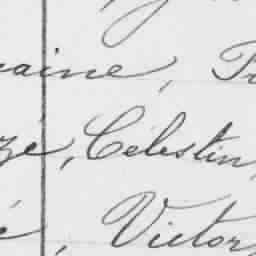 aine, 
zé, Célestin,
é, Victor